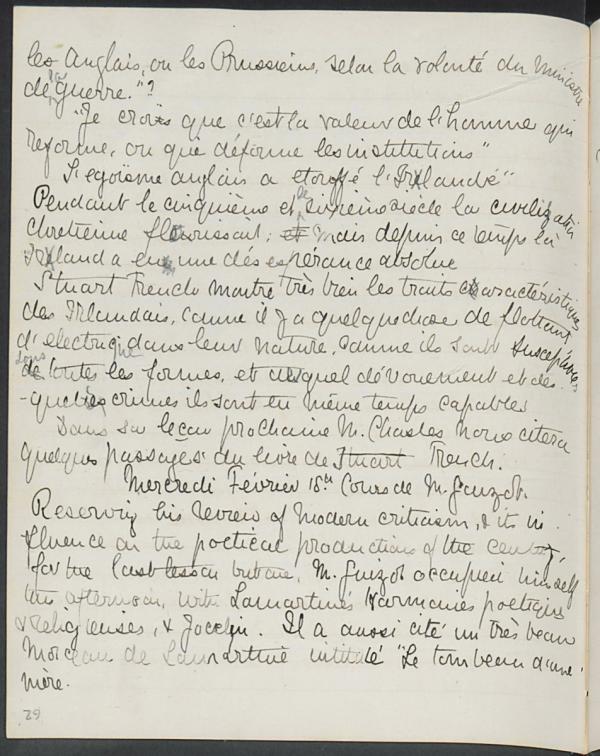 les Anglais, ou les Prussiens, selon la volonté du ministre
de la guerre."?
"Je crois que c'est la valeur de l'homme qui
reforme, ou que déforme les institutions"
"L'egoïsme anglais a etouffé l'Irlande"
Pendant le cinquième et le sixième siècle la civilization
chretienne florissait; et mais depuis ce temps là
Irland a eu une désespérance absolue
Stuart Trench montre très bien les traits characteristiques
des Irlandais, comme il y a quelquechose de flottant
d'electrique dans leur nature, comme ils sont susceptibles
de dans toutes les formes, et auquel dévouement et des
-quelles crimes ils sont en même temps capables
Dans sa leçon prochaine M. Chasles nous citera
quelques passages du livre de Stuart Trench.
Mercredi Février 18th Cours de M. Guizot.
Reserving his review of modern criticism, & its in
fluence on the poetical productions of the century,
for the last lesson but one, M. Guizot occupied himself
this afternoon, with Lamartine's Harmonies poetiques
& religieuses, & Jocelyn. Il a aussi cité un très beau
morceau de Lamartine intitulé "Le tombeau d'une
mère.
29